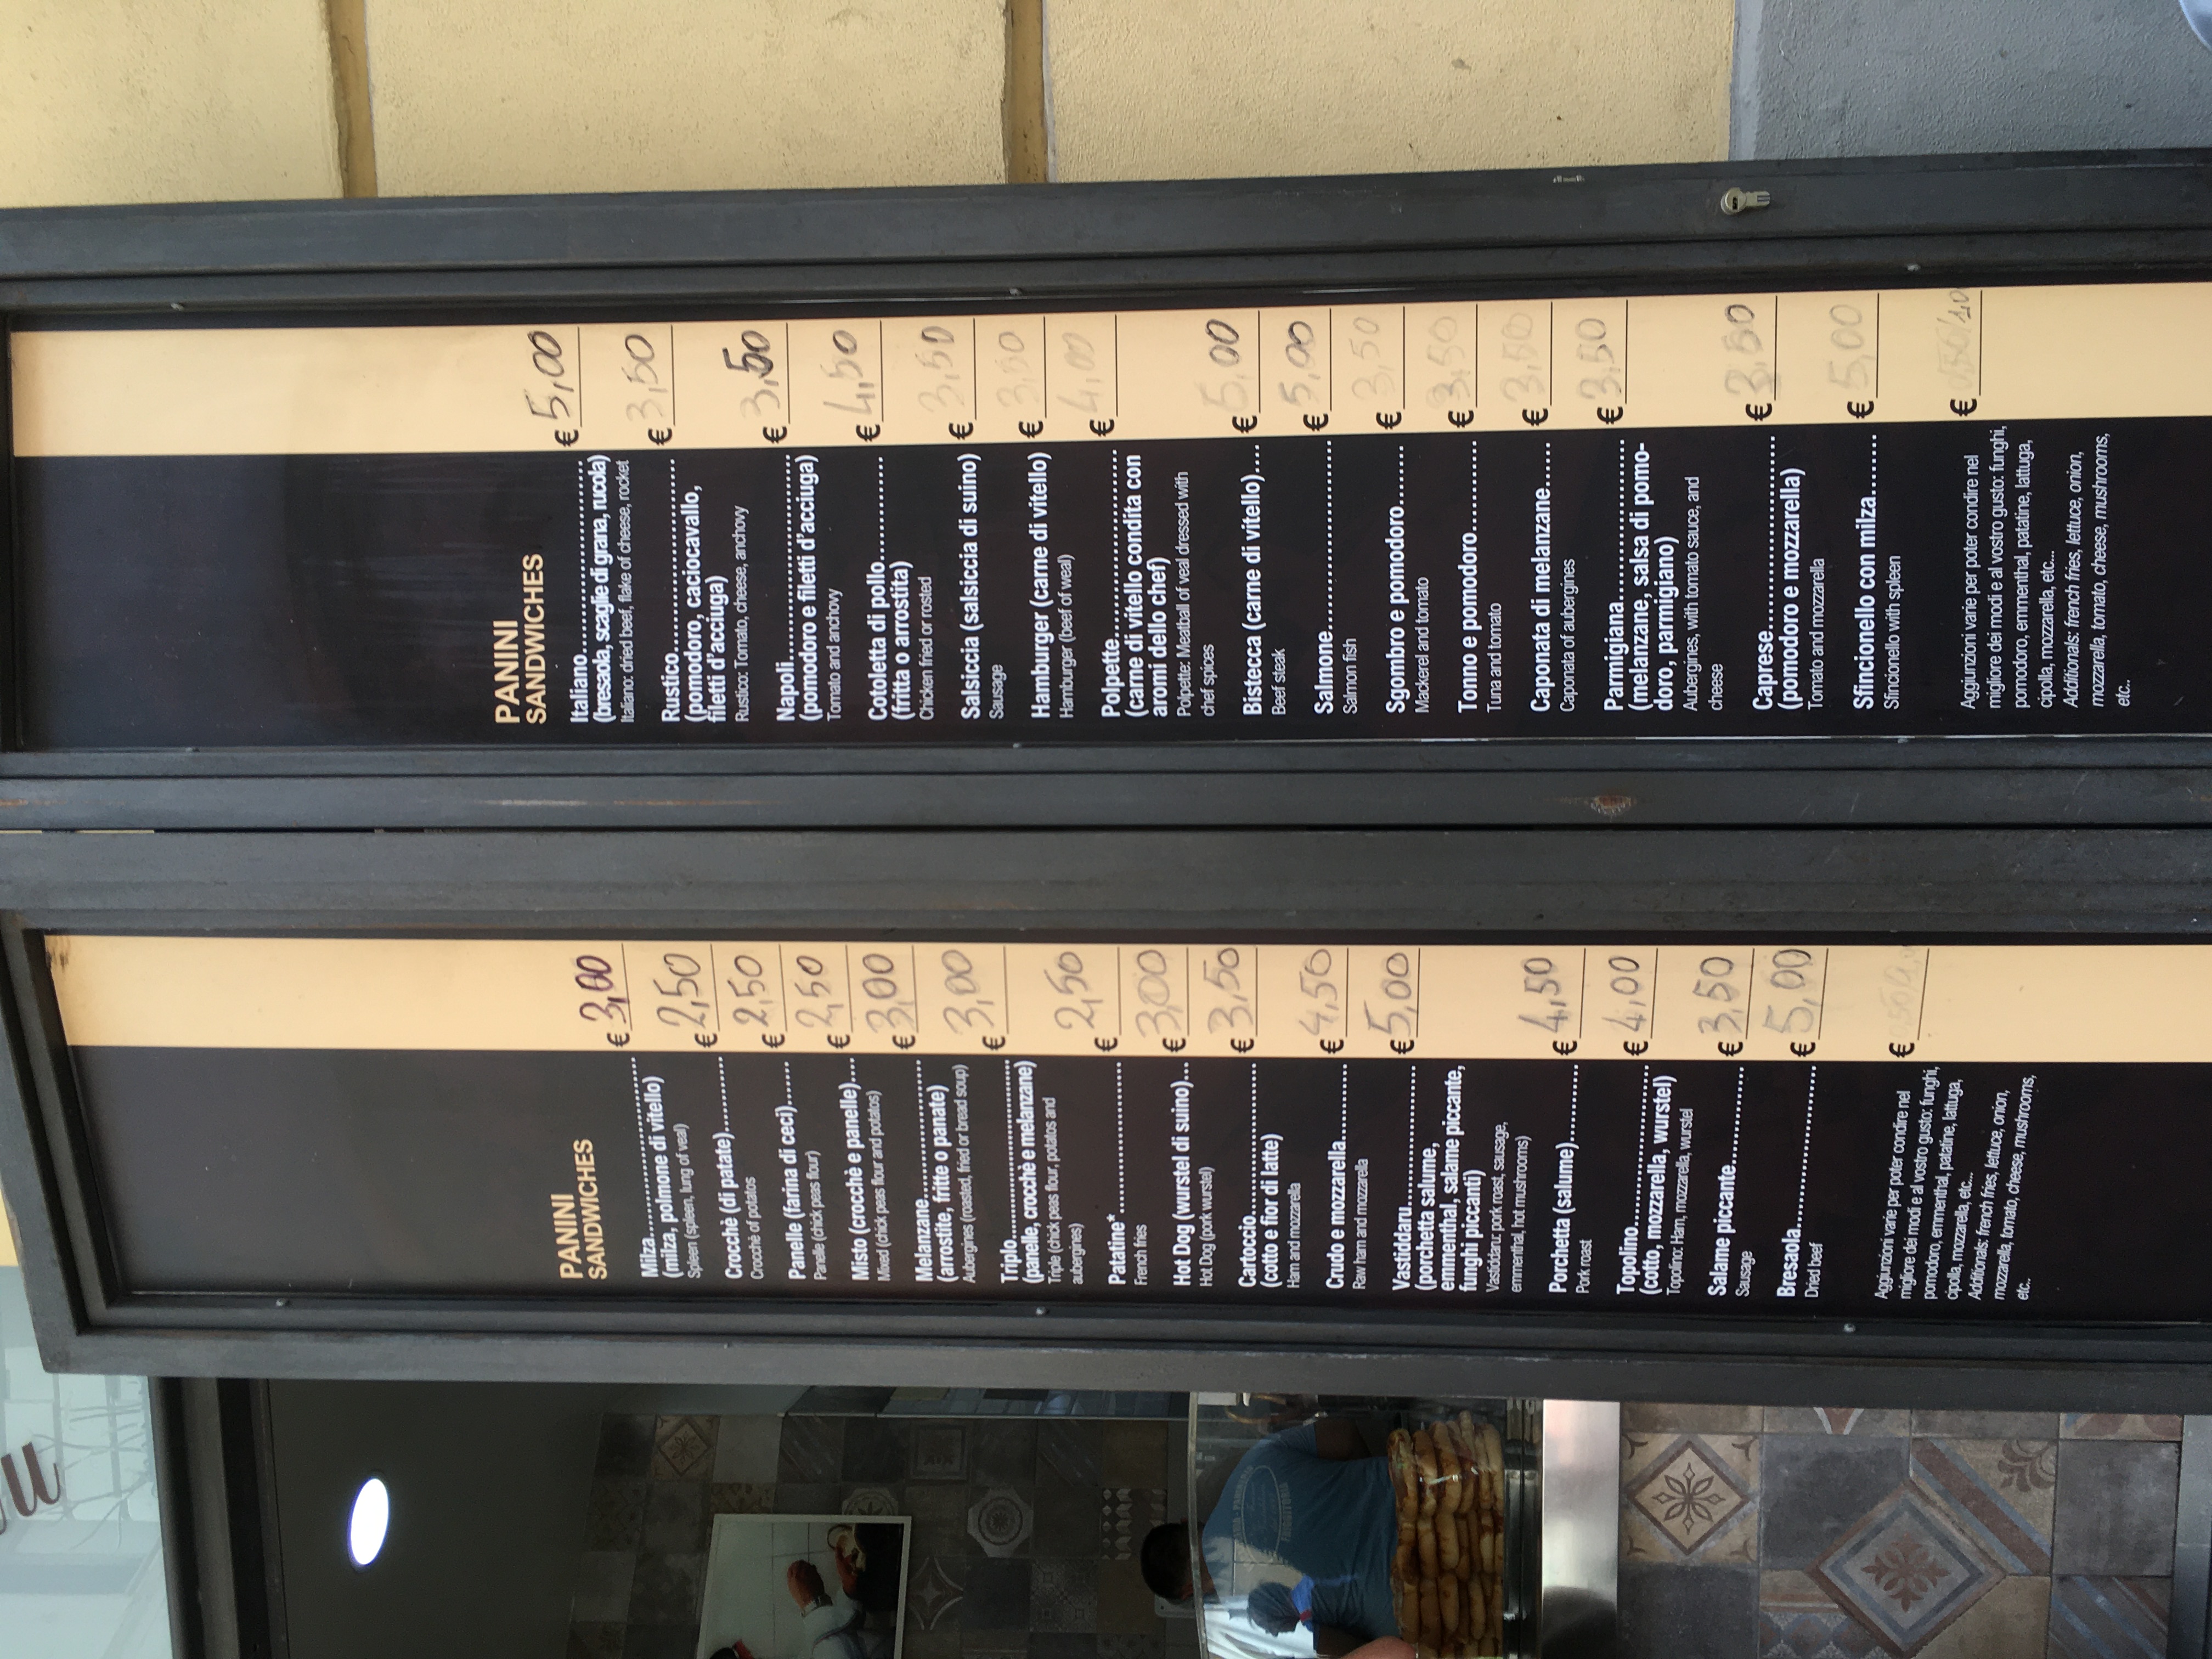 PANINI
SANDWICHES
Milza.......................... € 3,00
(milza, polmone di vitello)
Spleen (spleen, lung of veal)
Crocchè (di patate)........... € 2,50
Crocchè of potatos
Panelle (farina di ceci)....... € 2,50
Panelle (chick peas flour)
Misto (crocchè e panelle).... € 2,50
Mixed (chick peas flour and potatos)
Melanzane..................... € 3,00
(arrostite, fritte o panate)
Aubergines (roasted, fried or bread soup)
Triplo........................... € 3,00
(panelle, crocchè e melanzane)
Triple (chick peas flour, potatos and
aubergines)
Patatine*....................... € 2,50
French fries
Hot Dog (wurstel di suino)... € 3,00
Hot Dog (pork wurstel)
Cartoccio....................... € 3,50
(cotto e fior di latte)
Ham and mozzarella
Crudo e mozzarella........... € 4,50
Raw ham and mozzarella
Vastiddaru..................... € 5,00
(porchetta salume,
emmenthal, salame piccante,
funghi piccanti)
Vastiddaru: pork roast, sausage,
emmenthal, hot mushrooms)
Porchetta (salume)........... € 4,50
Pork roast
Topolino....................... € 4,00
(cotto, mozzarella, wurstel)
Topolino: Ham, mozzarella, wurstel
Salame piccante.............. € 3,50
Sausage
Bresaola....................... € 5,00
Dried beef
Aggiunzioni varie per poter condire nel €
migliore dei modi e al vostro gusto: funghi,
pomodoro, emmenthal, patatine, lattuga,
cipolla, mozzarella, etc...
Additionals: french fries, lettuce, onion,
mozzarella, tomato, cheese, mushrooms,
etc..
PANINI
SANDWICHES
Italiano.......................... € 5,00
(bresaola, scaglie di grana, rucola)
Italiano: dried beef, flake of cheese, rocket
Rustico.......................... € 3,50
(pomodoro, caciocavallo,
filetti d'acciuga)
Rustico: Tomato, cheese, anchovy
Napoli........................... € 3,50
(pomodoro e filetti d'acciuga)
Tomato and anchovy
Cotoletta di pollo.............. € 4,50
(fritta o arrostita)
Chicken fried or rosted
Salsiccia (salsiccia di suino) € 3,50
Sausage
Hamburger (carne di vitello) € 3,50
Hamburger (beef of weal)
Polpette......................... € 4,00
(carne di vitello condita con
aromi dello chef)
Polpette: Meatball of veal dressed with
chef spices
Bistecca (carne di vitello).... € 5,00
Beef steak
Salmone........................ € 5,00
Salmon fish
Sgombro e pomodoro........ € 3,50
Mackerel and tomato
Tonno e pomodoro............ € 3,50
Tuna and tomato
Caponata di melanzane...... € 3,50
Caponata of aubergines
Parmigiana..................... € 3,50
(melanzane, salsa di pomo-
doro, parmigiano)
Aubergines, with tomato sauce, and
cheese
Caprese......................... € 3,50
(pomodoro e mozzarella)
Tomato and mozzarella
Sfincionello con milza........ € 5,00
Sfincionello with spleen
Aggiunzioni varie per poter condire nel €
migliore dei modi e al vostro gusto: funghi,
pomodoro, emmenthal, patatine, lattuga,
cipolla, mozzarella, etc...
Additionals: french fries, lettuce, onion,
mozzarella, tomato, cheese, mushrooms,
etc..